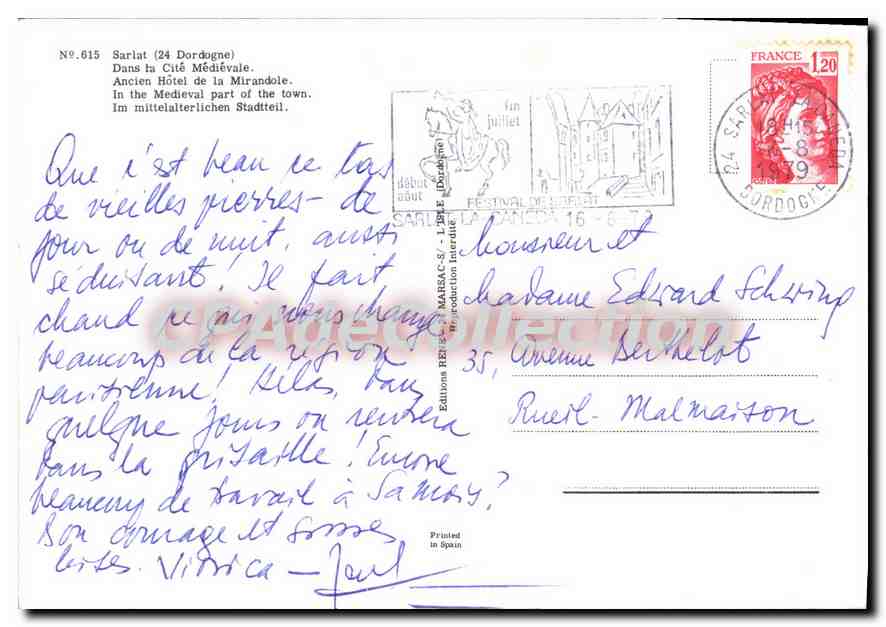 Nº.615 Sarlat (24 Dordogne)
Dans la Cité Médiévale.
Ancien Hôtel de la Mirandole.
In the Medieval part of the town.
Im mittelalterlichen Stadtteil.
Que c'est beau ce tas
de vieilles pierres - de
jour ou de nuit, aussi
séduisant! Il fait
chaud ce qui nous change
beaucoup de la région
parisienne! Hélas, dans
quelque jours on rentrera
dans la grisaille! Encore
beaucoup de travail à Samois?
Bon courage et grosses
bises.
début
août
fin
juillet
FESTIVAL DE SARLAT
SARLAT-LA-CANEDA 16 -8-79
Editions RENE MARSAC-S/- L'ISLE (Dordogne)
Reproduction Interdite
FRANCE 1,20
24 SARLAT LA CANEDA
8H15
-8
1979
DORDOGNE
Monsieur et
Madame Edward Schwing
35, Avenue Berthelot
Rueil-Malmaison
Printed
in Spain
CPADeCollection